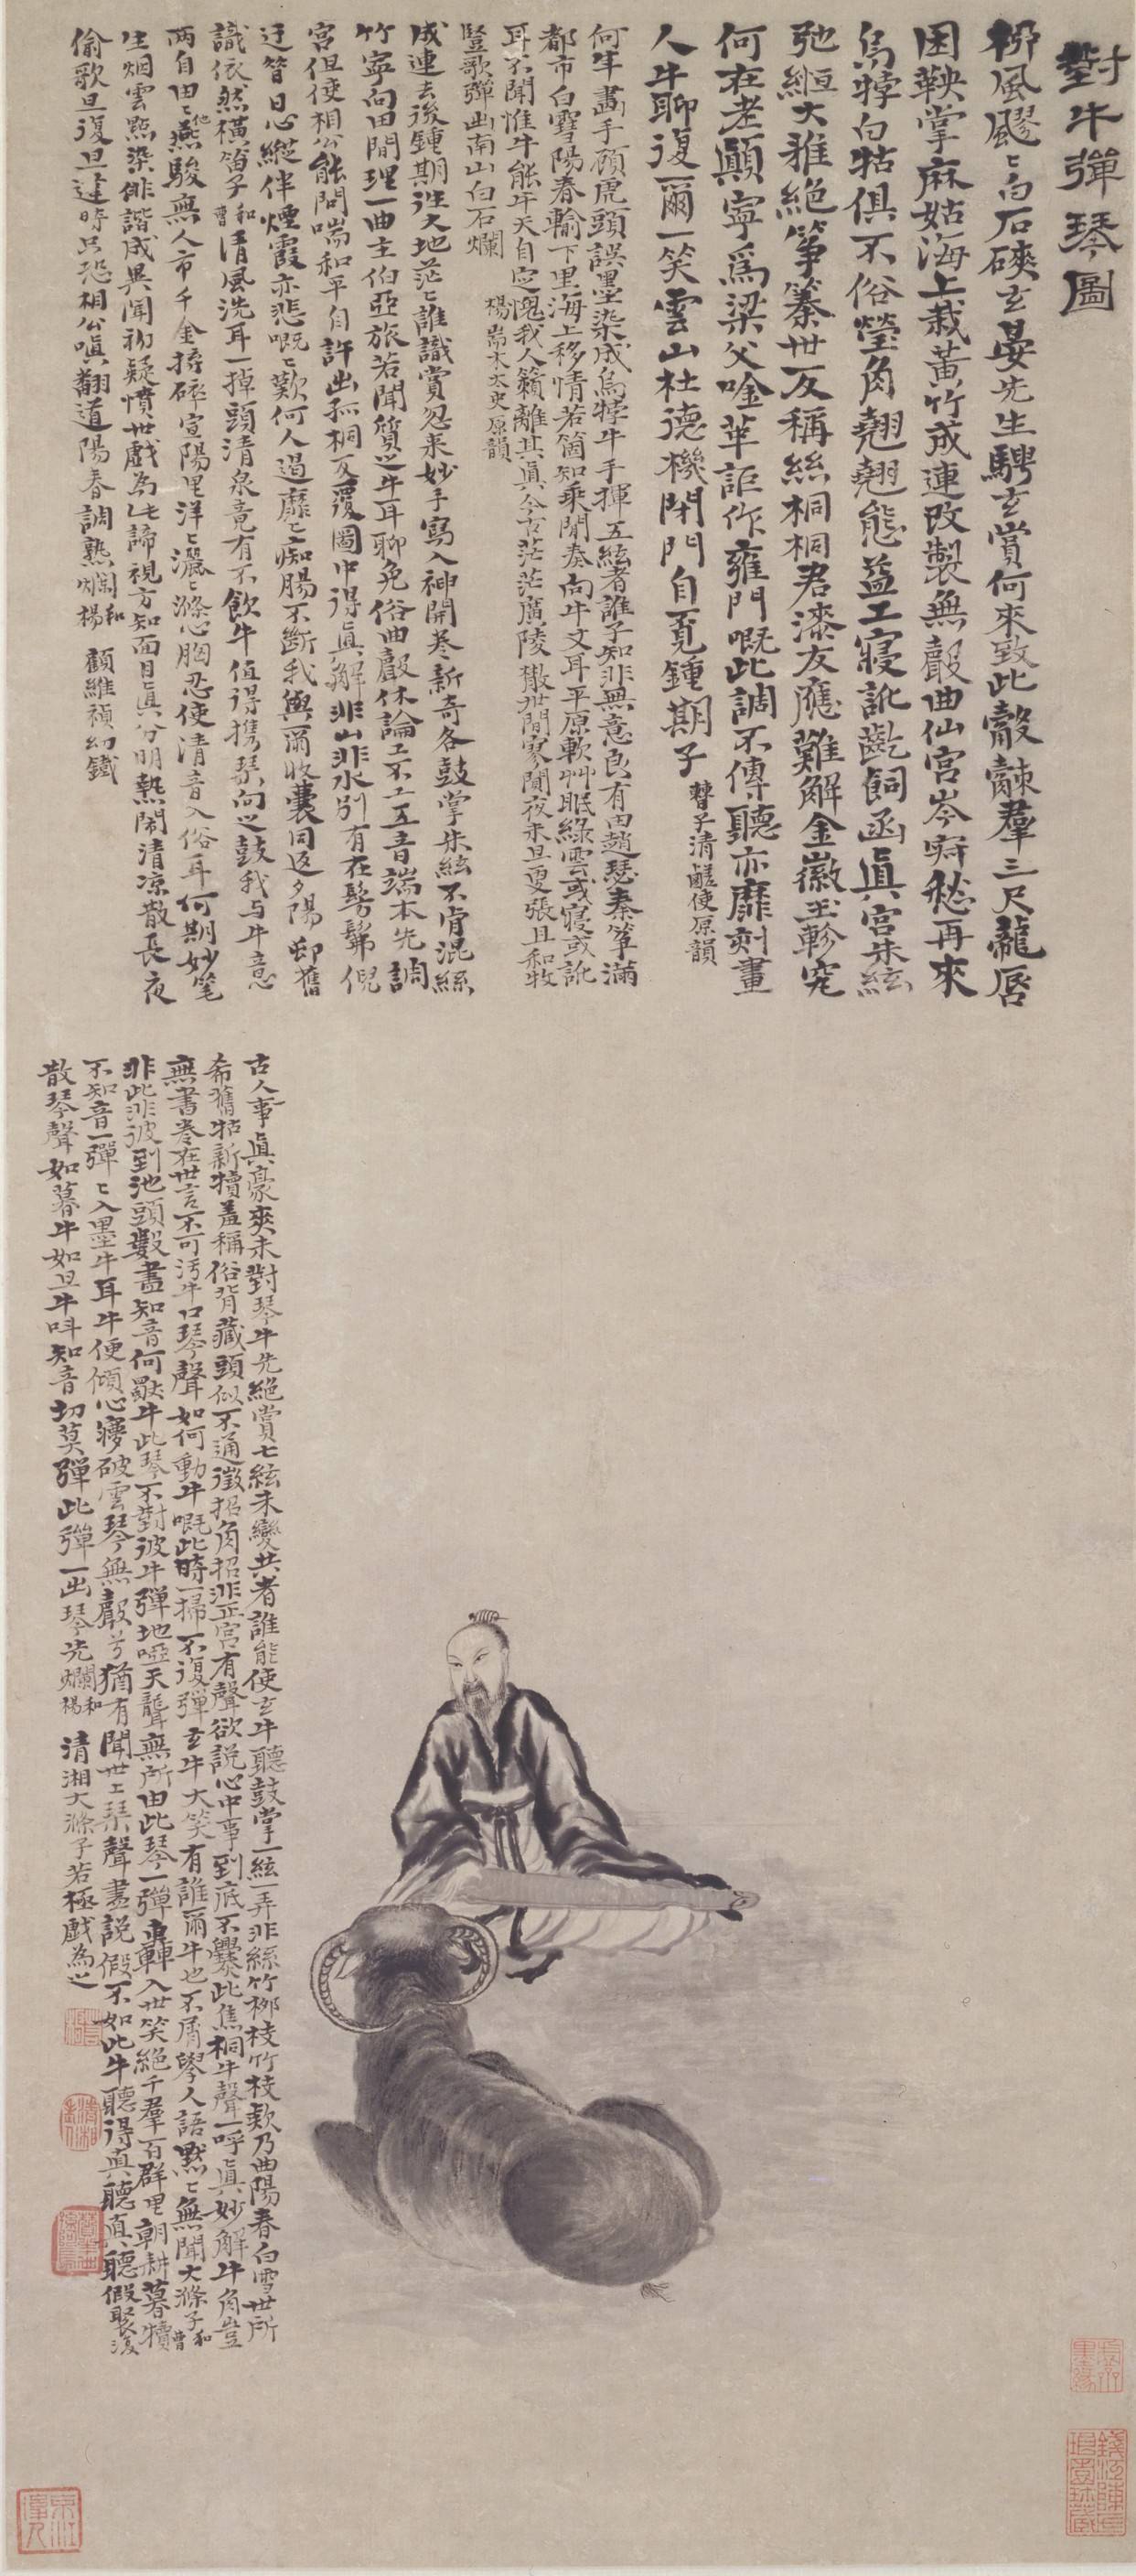 對牛彈琴圖
柳風飂〻白石磢玄晏先生騁玄賞何來致此觳觫羣三尺龍唇
困鞅掌麻姑海上栽黃竹成連改製無聲曲仙宮岑寂愁再來
烏牸白牯俱不俗瑩角翹翹態益工寢訛齕飼函真宮朱絃
弛縆大雅絕箏篆世反稱絲桐桐君漆友應難解金徽玉軫究
何在老顛寧爲梁父唫萃詎作雍門嘅此調不傳聽亦靡刻畫
人牛聊復爾一笑雲山杜德機閉門自覓鍾期子 子清鹺使原韻
何年畫手顧虎頭誤墨染成烏牸牛手揮五絃者誰子知非無意良有由趙瑟秦箏滿
都市白雪陽春輸下里海上移情若箇知乘閒奏向牛文耳平原軟艸眠綠雲或寢或訛
耳不聞惟牛能牛天自定愧我人籟離其真今古茫茫廣陵散世間寥闃夜未旦更張且和牧
豎歌彈出南山白石爛 楊耑木太史原韻
成連去後鍾期往大地茫〻誰識賞忽來妙手寫入神開卷新奇各鼓掌朱絃不肯混絲
竹寧向田間理一曲主伯亞旅若聞質之牛耳聊免俗曲聲休論工不工五音端本先調
宮但使相公能問喘和平自許出孤桐反覆圖中得真解非山非水別有在髣髴倪
迂筆日心縱伴煙霞亦悲嘅〻歎何人過靡〻痴腸不斷我與爾收囊同返夕陽邨舊
識依然橫笛子 和曹 清風洗耳一掉頭清泉竟有不飲牛值得携琴向之鼓我与牛意
兩自由他燕駿無人市千金摔碎宣陽里洋〻灑〻滌心胸忍使清音入俗耳何期妙筆
生烟雲點染俳諧成異聞初疑憤世戲為此諦視方知面目真分明熱鬧清凉散長夜
偷歌旦復旦逢時只恐相公嗔翻道陽春調熟爛 和楊 顧維禎幼鐵
古人事真豪爽未對琴牛先絕賞七絃未變共者誰能使玄牛聽鼓掌一絃一弄非絲竹柳枝竹枝欸乃曲陽春白雪世所
希舊牯新犢羞稱俗背藏頭似不通徵招角招非正宮有聲欲說心中事到底不爨此焦桐牛聲一呼真妙解牛角豈
無書卷在世言不可污牛口琴聲如何動牛嘅此時一掃不復彈玄牛大笑有誰爾牛也不屑學人語默〻無聞大滌子 和曹
非此非彼到池頭數盡知音何獨牛此琴不對彼牛彈地啞天聾無所由此琴一彈轟入世笑絕千羣百群里朝耕暮犢
不知音一彈〻入墨牛耳牛便傾心夢破雲琴無聲兮猶有聞世上琴聲盡說假不如此牛聽得真聽真聽假聚復
散琴聲如暮牛如旦牛叫知音切莫彈此彈一出琴先爛 和楊 清湘大滌子若極戲為之